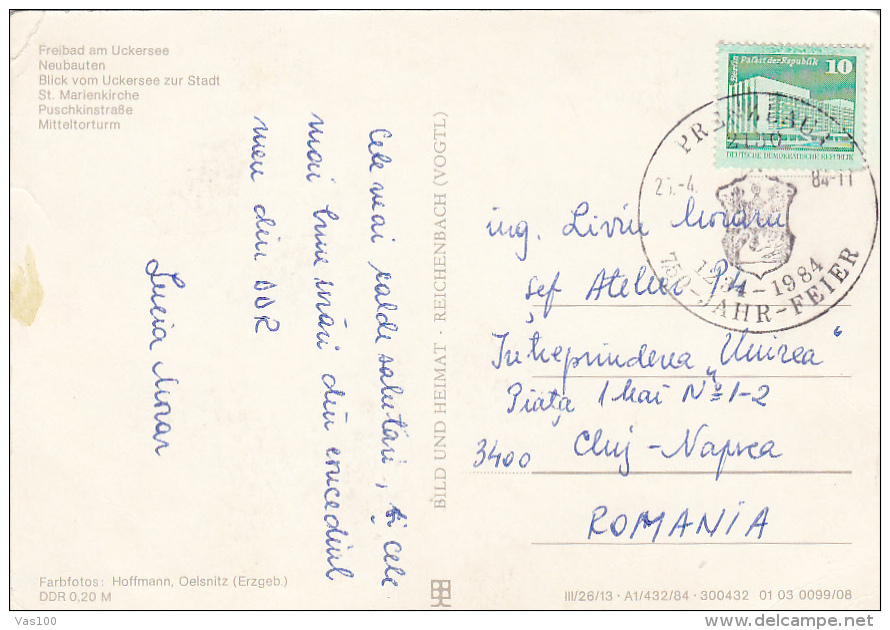 Freibad am Uckersee
Neubauten
Blick vom Uckersee zur Stadt
St. Marienkirche
Puschkinstraße
Mitteltorturm
Cele mai calde salutări, și cele
mai bune urări din concediul
meu din DDR
Lucia Moraru
Farbfotos: Hoffmann, Oelsnitz (Erzgeb.)
DDR 0,20 M
BILD UND HEIMAT · REICHENBACH (VOGTL)
Berlin Palast der Republik 10
DEUTSCHE DEMOKRATISCHE REPUBLIK
PRENZLAU 1
2130
84-11
1234-1984
750-JAHR-FEIER
ing. Liviu Moraru
șef Atelier
Întreprinderea „Unirea"
Piața 1 Mai Nº 1-2
3400 Cluj-Napoca
ROMANIA
III/26/13 · A1/432/84 · 300432 01 03 0099/08
Vas100
www.delcampe.net